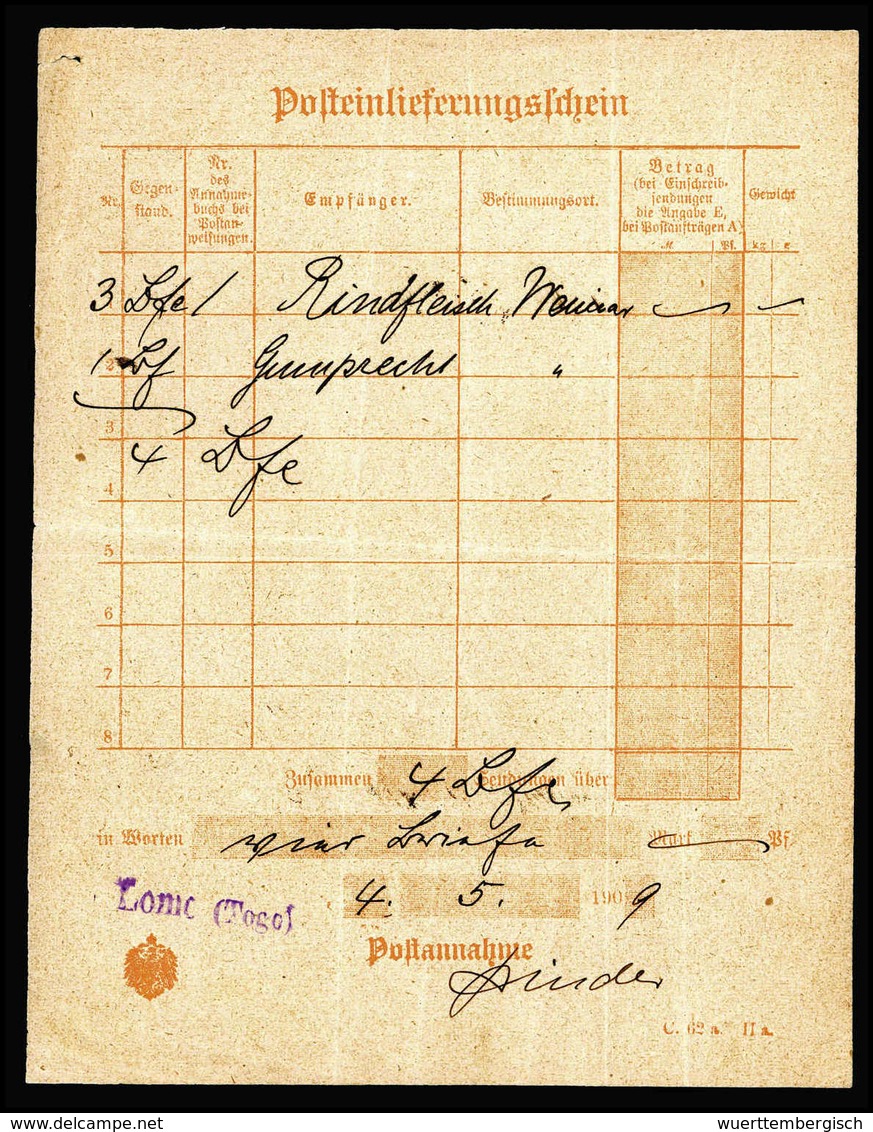 Posteinlieferungsschein
Nr.
Gegen-
stand.
Nr.
des
Annahme-
buchs bei
Postan-
weisungen.
Empfänger.
Bestimmungsort.
Betrag
(bei Einschreib-
sendungen
die Angabe E,
bei Postaufträgen A)
M Pf.
Gewicht
kg g
3 Bfe 1 Rindfleisch Weimar
1 2 Bf Gumprecht "
3
4 Bfe
4
5
6
7
8
Zusammen 4 Bfe Sendungen über
in Worten vier Briefe Mark Pf.
Lome (Togo)
4. 5. 1909
Postannahme
C. 62 a. II a.
wuerttembergisch